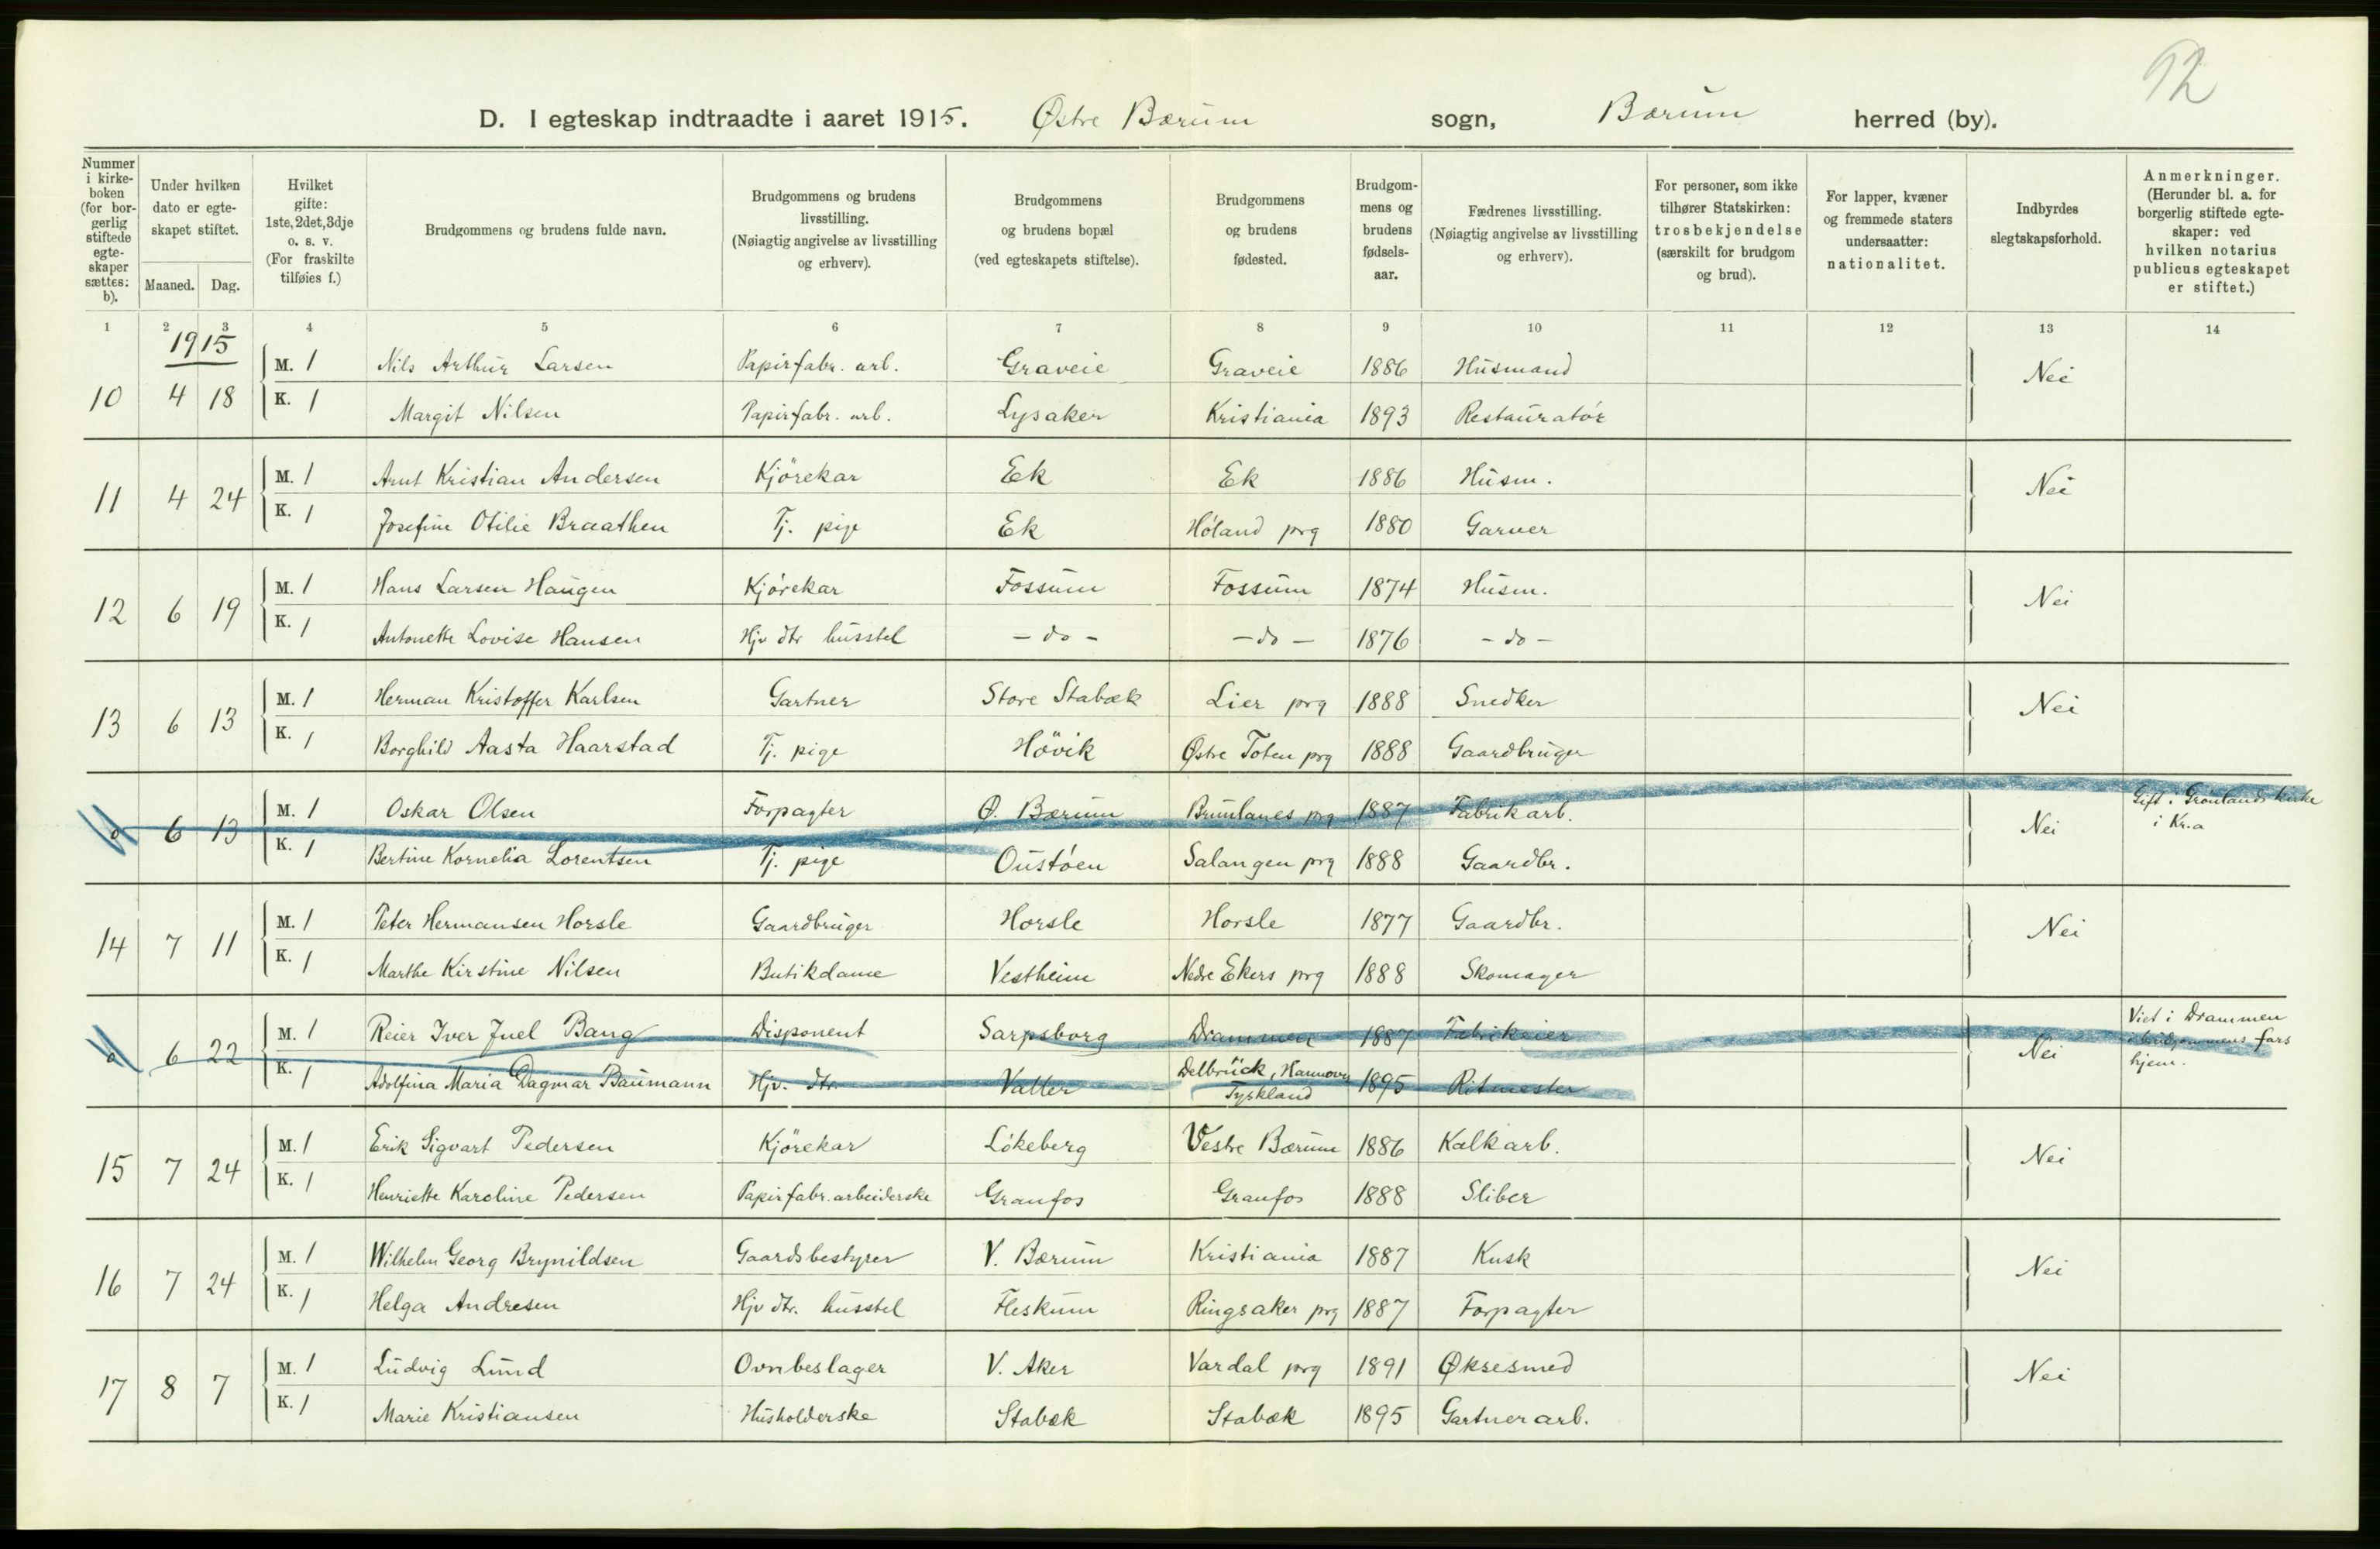 92
D. I egteskap indtraadte i aaret 1915. Østre Bærum sogn, Bærum herred (by).
Nummer i kirke-boken (for bor-gerlig stiftede egte-skaper sættes: b).
Under hvilken dato er egte-skapet stiftet.
Maaned. Dag.
Hvilket gifte: 1ste, 2det, 3dje o. s. v. (For fraskilte tilføies f.)
Brudgommens og brudens fulde navn.
Brudgommens og brudens livsstilling. (Nøiagtig angivelse av livsstilling og erhverv).
Brudgommens og brudens bopæl (ved egteskapets stiftelse).
Brudgommens og brudens fødested.
Brudgom-mens og brudens fødsels-aar.
Fædrenes livsstilling. (Nøiagtig angivelse av livsstilling og erhverv).
For personer, som ikke tilhører Statskirken: trosbekjendelse (særskilt for brudgom og brud).
For lapper, kvæner og fremmede staters undersaatter: nationalitet.
Indbyrdes slegtskapsforhold.
Anmerkninger. (Herunder bl. a. for borgerlig stiftede egte-skaper: ved hvilken notarius publicus egteskapet er stiftet.)
1 2 3 4 5 6 7 8 9 10 11 12 13 14
1915
M. 1 Nils Arthur Larsen Papirfabr. arb. Graveie Graveie 1886 Husmand
10 4 18 Nei
K. 1 Margit Nilsen Papirfabr. arb. Lysaker Kristiania 1893 Restauratør
M. 1 Arnt Kristian Andersen Kjörekar Eek Ek 1886 Husm.
11 4 24 Nei
K. 1 Josefine Otilie Braathen Tj. pige Ek Höland prg 1880 Garver
M. 1 Hans Larsen Haugen Kjörekar Fossum Fossum 1874 Husm.
12 6 19 Nei
K. 1 Antonette Lovise Hansen Hjv dtr husstel - do - - do - 1876 - do -
M. 1 Herman Kristoffer Karlsen Gartner Store Stabæk Lier prg 1888 Snedker
13 6 13 Nei
K. 1 Borghild Aasta Haarstad Tj. pige Hövik Østre Toten prg 1888 Gaardbruger
M. 1 Oskar Olsen Forpagter Ø. Bærum Brunlanes prg 1887 Fabrikarb. Gift i Grønlands kirke
6 13 Nei i Kr.a
K. 1 Bertine Kornelia Lorentsen Tj. pige Oustöen Salangen prg 1888 Gaardbr.
M. 1 Peter Hermansen Horsle Gaardbruger Horsle Horsle 1877 Gaardbr.
14 7 11 Nei
K. 1 Marthe Kirstine Nilsen Butikdame Vestheim Nedre Ekers prg 1888 Skomager
M. 1 Reier Iver Juel Bang Disponent Sarpsborg Drammen 1887 Fabrikeier Viet i Drammen
6 22 Nei i brudgommens fars
K. 1 Adolfina Maria Dagmar Baumann Hjv. dtr. Valler Delbrück, Hannover Tyskland 1895 Ritmester hjem.
M. 1 Erik Sigvart Pedersen Kjörekar Lökeberg Vestre Bærum 1886 Kalkarb.
15 7 24 Nei
K. 1 Henriette Karoline Pedersen Papirfabr. arbeiderske Granfos Granfos 1888 Sliber
M. 1 Wilhelm Georg Brynildsen Gaardsbestyrer V. Bærum Kristiania 1887 Kusk
16 7 24 Nei
K. 1 Helga Andresen Hjv dtr. husstel Fleskum Ringsaker prg 1887 Forpagter
M. 1 Ludvig Lund Ovnbeslager V. Aker Vardal prg 1891 Øksesmed
17 8 7 Nei
K. 1 Marie Kristiansen Husholderske Stabæk Stabæk 1895 Gartnerarb.